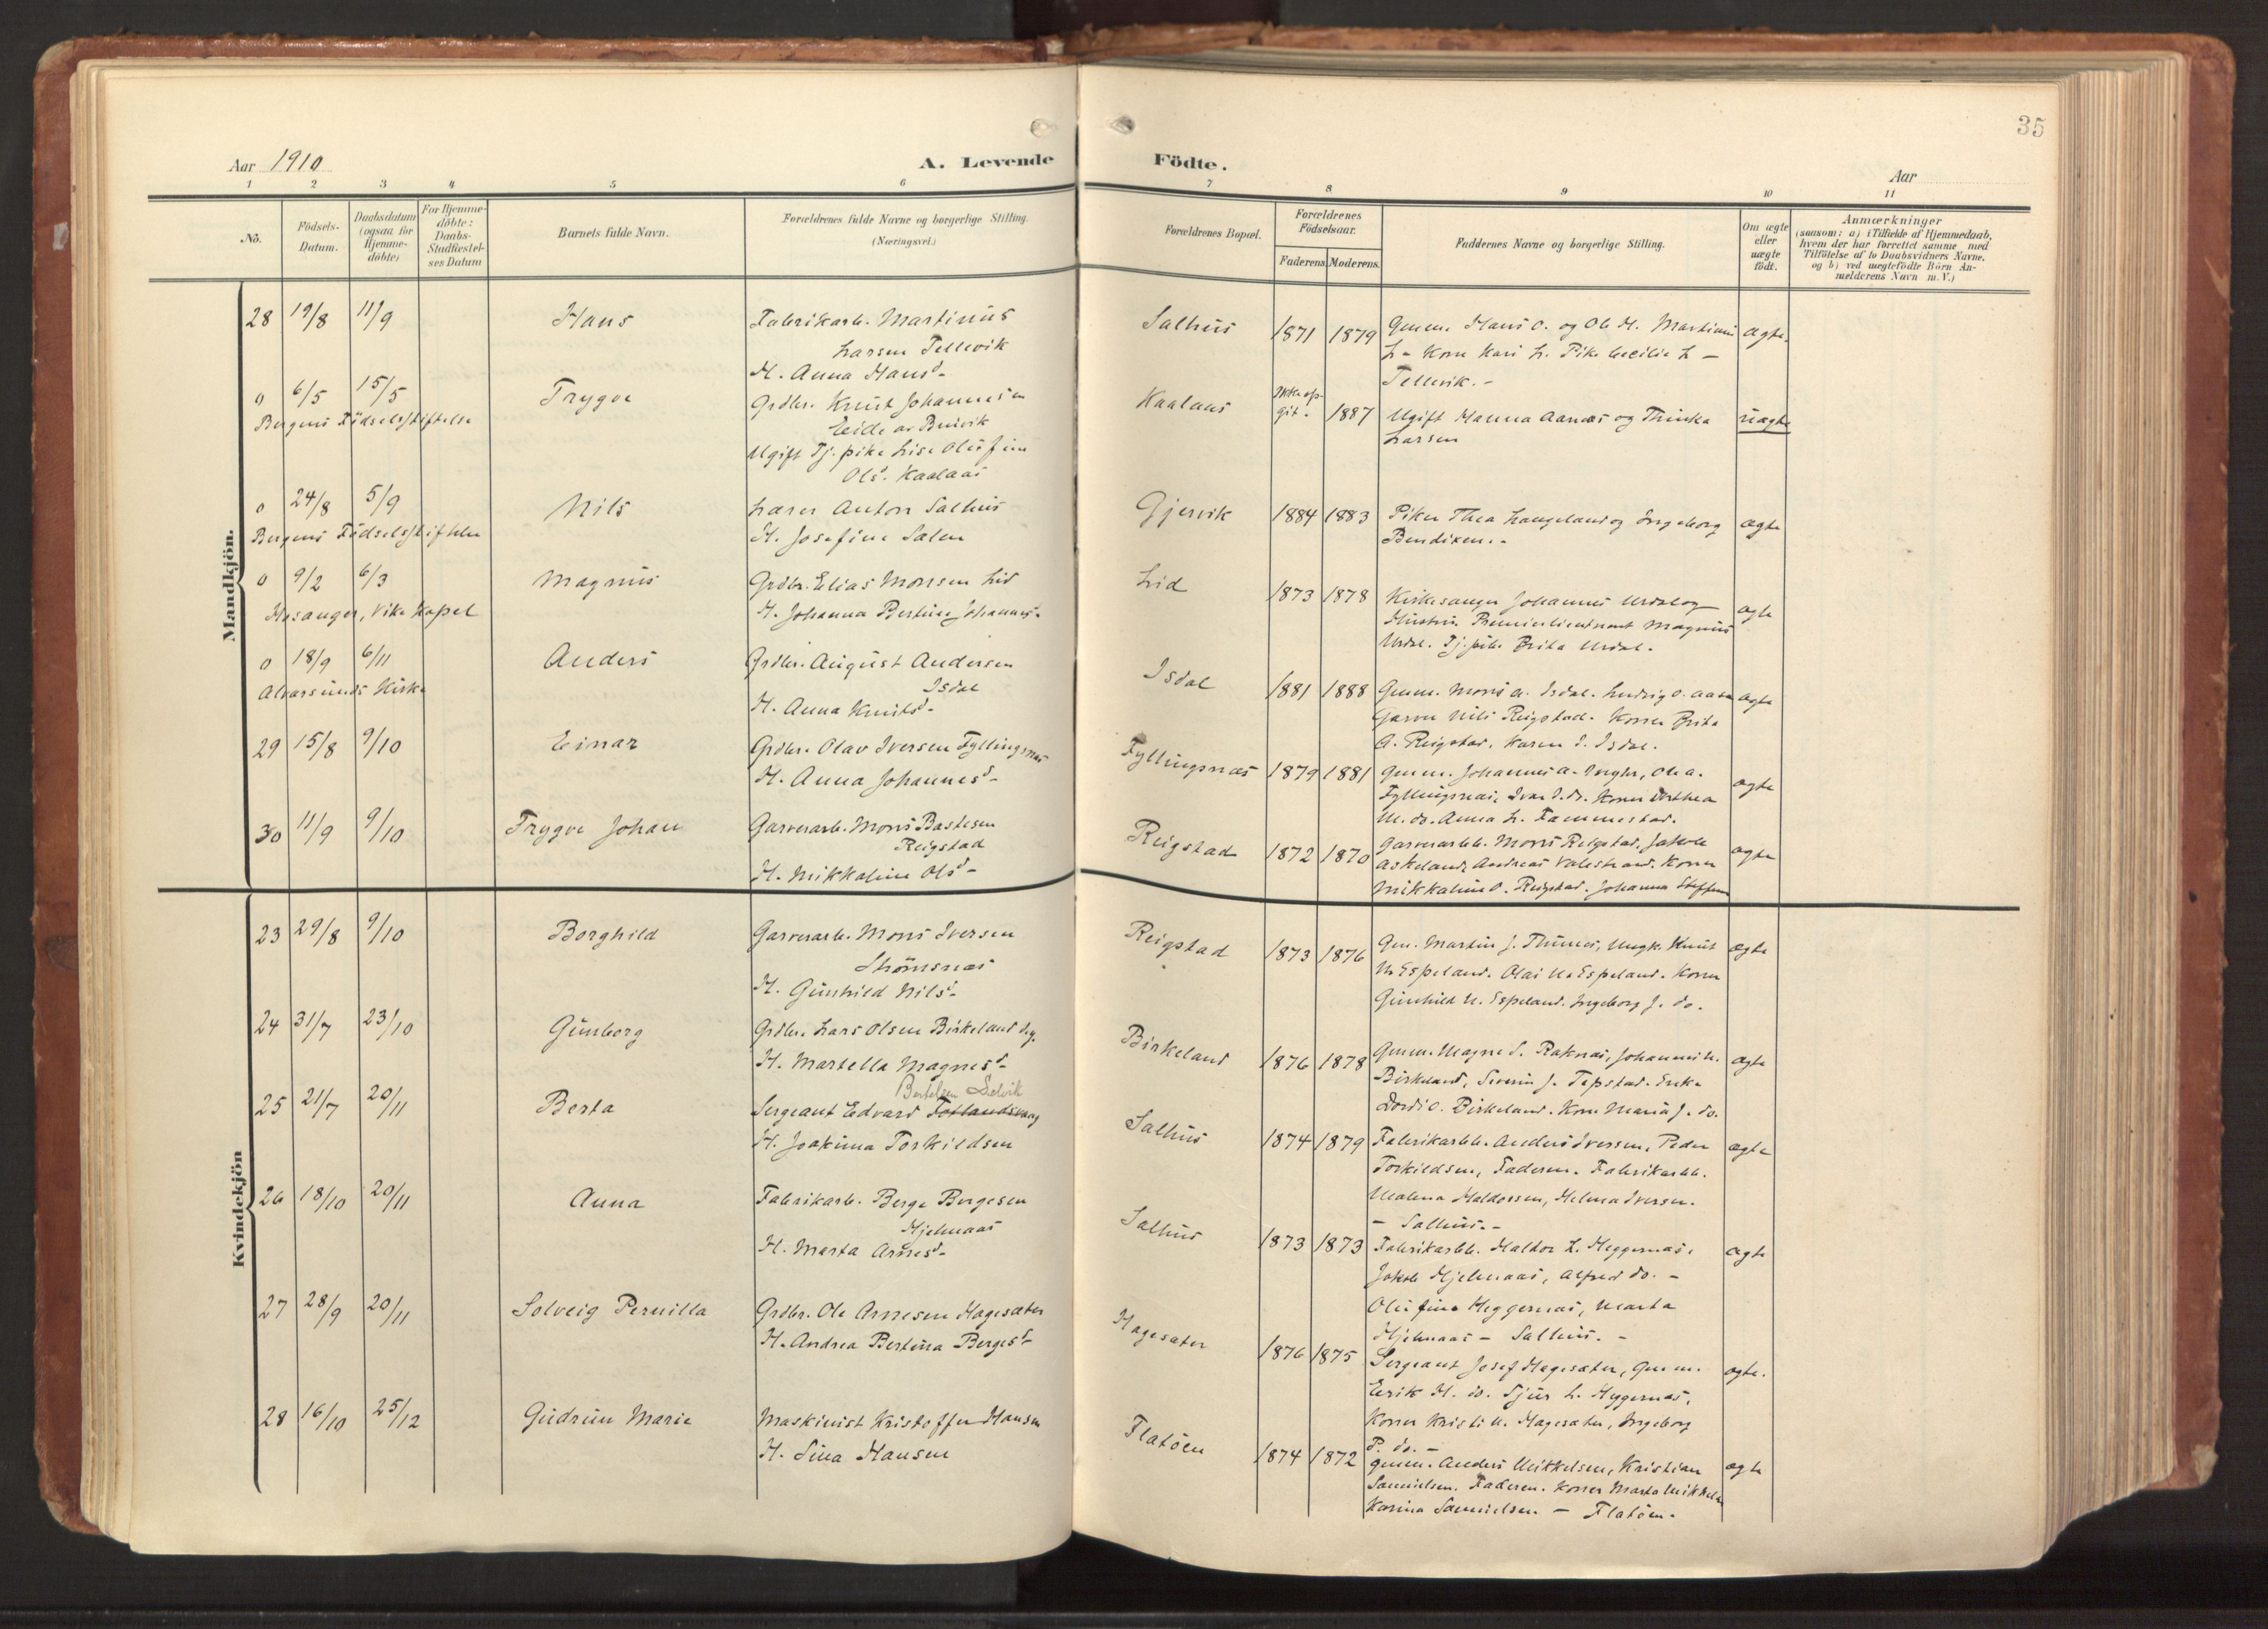 35
Aar 1910
A. Levende Födte.
Aar
1 2 3 4 5 6 7 8 9 10 11
No.
Födsels-
Datum.
Daabsdatum
(ogsaa for
Hjemme-
döbte)
For Hjemme-
döbte:
Daabs-
Stadfæstel-
ses Datum
Barnets fulde Navn.
Forældrenes fulde Navne og borgerlige Stilling.
(Næringsvei.)
Forældrenes Bopæl.
Forældrenes
Födselsaar.
Faderens. Moderens.
Faddernes Navne og borgerlige Stilling.
Om ægte
eller
uægte
födt.
Anmærkninger
(saasom: a) i Tilfælde af Hjemmedaab,
hvem der har forrettet samme med
Tilföielse af to Daabsvidners Navne,
og b) ved uægtefödte Börn An-
melderens Navn m. V.)
Mandkjön.
28 19/8 11/9 Hans
Fabrikarb. Martinus
Larsen Tellevik
H. Anna Hansd-
Salhus 1871 1879
Gmm. Hans O. og Ole M. Martinus
L- Kone Kari L. Pike Cecilie L-
Tellevik.-
ægte.
o 6/5 15/5 Trygve
Bergens Födselsstiftelse
Grdbr. Knut Johannesen
Eide av Bruvik
Ugift Tj. pike Lise Olufine
Olsd. Kaalaas
Kaalaas Ikke op-
git. 1887
Ugift Hanna Aarnes og Thinka
Larsen
uægte
o 24/8 5/9 Nils
Bergens Födselsstiftelse
Lærer Anton Salhus
H. Josefine Salen
Gjervik 1884 1883
Piker Thea Langeland og Ingeborg
Bendixen.-
ægte
o 9/2 6/3 Magnus
Hosanger, Vike Kapel
Grdbr. Elias Monsen Lid
H. Johanna Bertine Johannesd-
Lid 1873 1878
Kirkesanger Johannes Urdal og
Hustru, Premierlieutnant Magnus
Urdal. Tj. pike Brita Urdal.
ægte
o 18/9 6/11 Anders
Alversunds Kirke
Grdbr. August Andersen
Isdal
H. Anna Knutsd-
Isdal 1881 1888
Gmm. Mons A. Isdal. Ludvig O. Aase
Garver Nils Reigstad. Koner Brita
A. Reigstad, Karen I. Isdal.
ægte
29 15/8 9/10 Einar
Grdbr. Olav Iversen Fyllingsnes
H. Anna Johannesd-
Fyllingsnæs 1879 1881
Gmm. Johannes A. Ole A.
Fyllingsnæs, Ivar I. do. Koner Dorthea
M. do. Anna L. Tammestad.
ægte
30 11/9 9/10 Trygve Johan
Garverarb. Mons Bastesen
Reigstad
H. Mikkaline Olsd-
Reigstad 1872 1870
Garverarbb. Mons Reigstad, Jakob
Askeland, Andreas Valestrand. Koner
Mikkaline O. Reigstad. Johanna Steffens
ægte
Kvindekjön
23 29/8 9/10 Borghild
Garverarb. Mons Iversen
Strömsnes
H. Gunhild Nilsd-
Reigstad 1873 1876
Gm. Martin J. Thunes, Ungk. Knut
N. Espeland. Olai N. Espeland. Koner
Gunhild N. Espeland. Ingeborg J. do.
ægte
24 31/7 23/10 Gunborg
Grdbr. Lars Olsen Birkeland d.y.
H. Martella Magnesd-
Birkeland 1876 1878
Gmm. Magne S. Raknes, Johannes N.
Birkeland, Severin J. Tepstad. Enke
Dordi O. Birkeland. Kone Maria J. do.
ægte
25 21/7 20/11 Berta
Bertelsen Selvik
Sergeant Edvard Fotlandsvaag
H. Joakima Torkildsen
Salhus 1874 1879
Fabrikarbb. Anders Iversen, Peder
Torkildsen, Faderen. Fabrikarbb.
Malena Haldorsen, Helma Iversen.
- Salhus.-
ægte
26 18/10 20/11 Anna
Fabrikarb. Berge Bergesen
Hjelmaas
H. Marta Arnesd-
Salhus 1873 1873
Fabrikarbb. Haldor L. Heggernæs,
Jakob Hjelmaas, Alfred do. -
Olufine Heggernæs, Marta
Hjelmaas - Salhus. -
ægte
27 28/9 20/11 Solveig Pernilla
Grdbr. Ole Arnesen Hagesæter
H. Andrea Bertina Bergesd-
Hagesæter 1876 1875
Sergeant Josef Hagesæter, Gmm.
Eerik H. do. Sjur L. Heggernæs,
Koner Kristi N. Hagesæter, Ingeborg
P. do. -
ægte.
28 16/10 25/12 Gudrun Marie
Maskinist Kristoffer Hansen
H. Sina Hansen
Flatöen 1874 1872
Gmm. Anders Mikkelsen, Kristian
Samuelsen. Faderen. Koner Marta Mikkels
Karina Samuelsen - Flatöen.
ægte